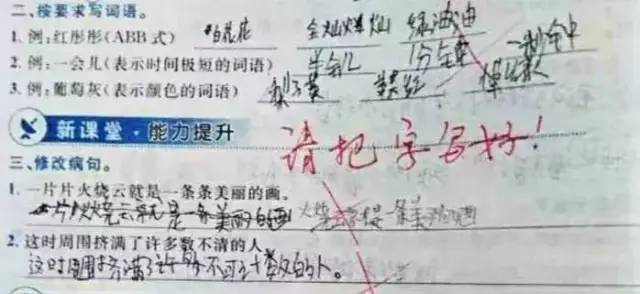 二、按要求写词语。
1. 例:红彤彤(ABB 式) 白花花 金灿灿 绿油油
2. 例:一会儿(表示时间极短的词语) 半会儿 1分钟 1秒钟
3. 例:葡萄灰(表示颜色的词语)
新课堂·能力提升
请把字写好!
三、修改病句。
1. 一片片火烧云就是一条条美丽的画。
一片火烧云就是一条美丽的画
2. 这时周围挤满了许多数不清的人。
这时周围挤满了许多不可计数的人。